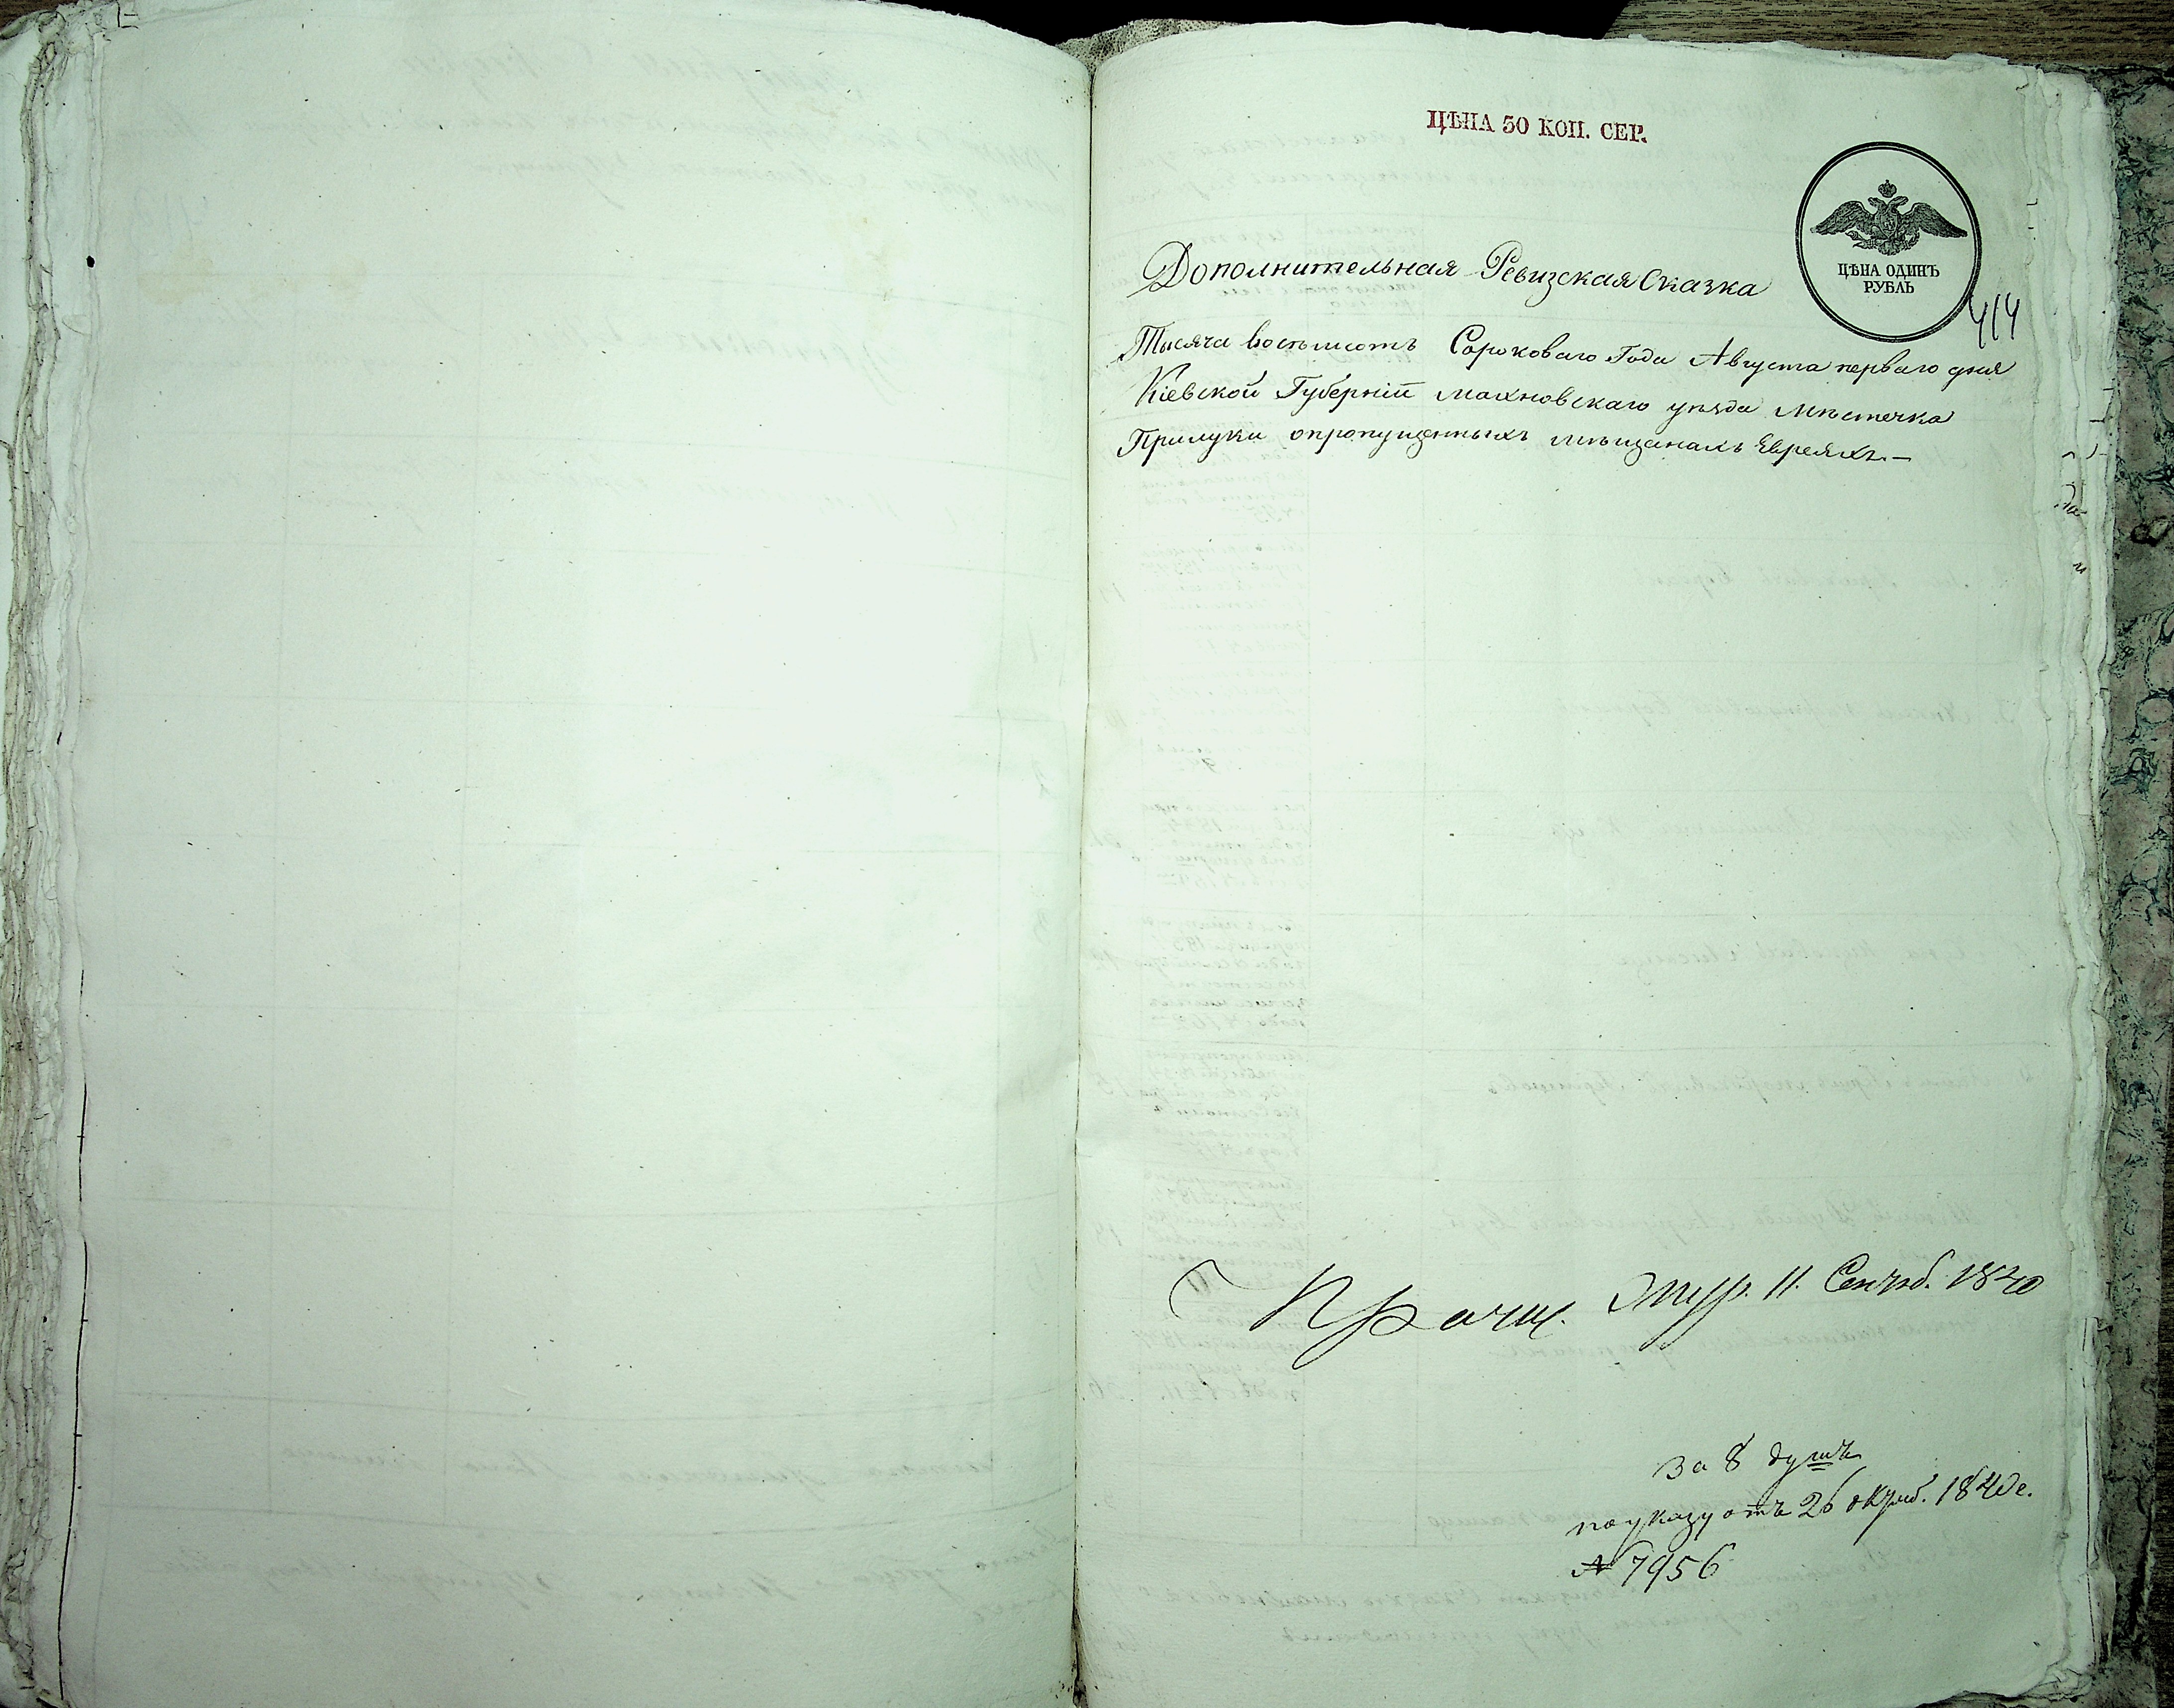 ЦѢНА 50 КОП. СЕР.
ЦѢНА ОДИНЪ
РУБЛЬ
414
Дополнительная Ревизская Сказка
Тысяча восемьсотъ Сороковаго Года Августа перваго дня
Кіевской Губерніи Махновскаго уѣзда Мѣстечка
Прилуки опропущенныхъ мѣщанахъ Евреяхъ. —
11. Сентяб. 1840
За 8 душъ
по указу отъ 26 октяб. 1840 г.
№ 7956